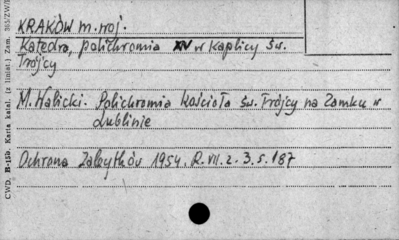 KRAKÓW m. woj.
Katedra, polichromia XV w kaplicy św.
Trójcy
M. Walicki. Polichromia kościoła św. Trójcy na Zamku w
Lublinie
Ochrona Zabytków 1954. R. VII. z. 3. s. 187
CWD. B-150. Karta katal. (z liniat.) Zam.